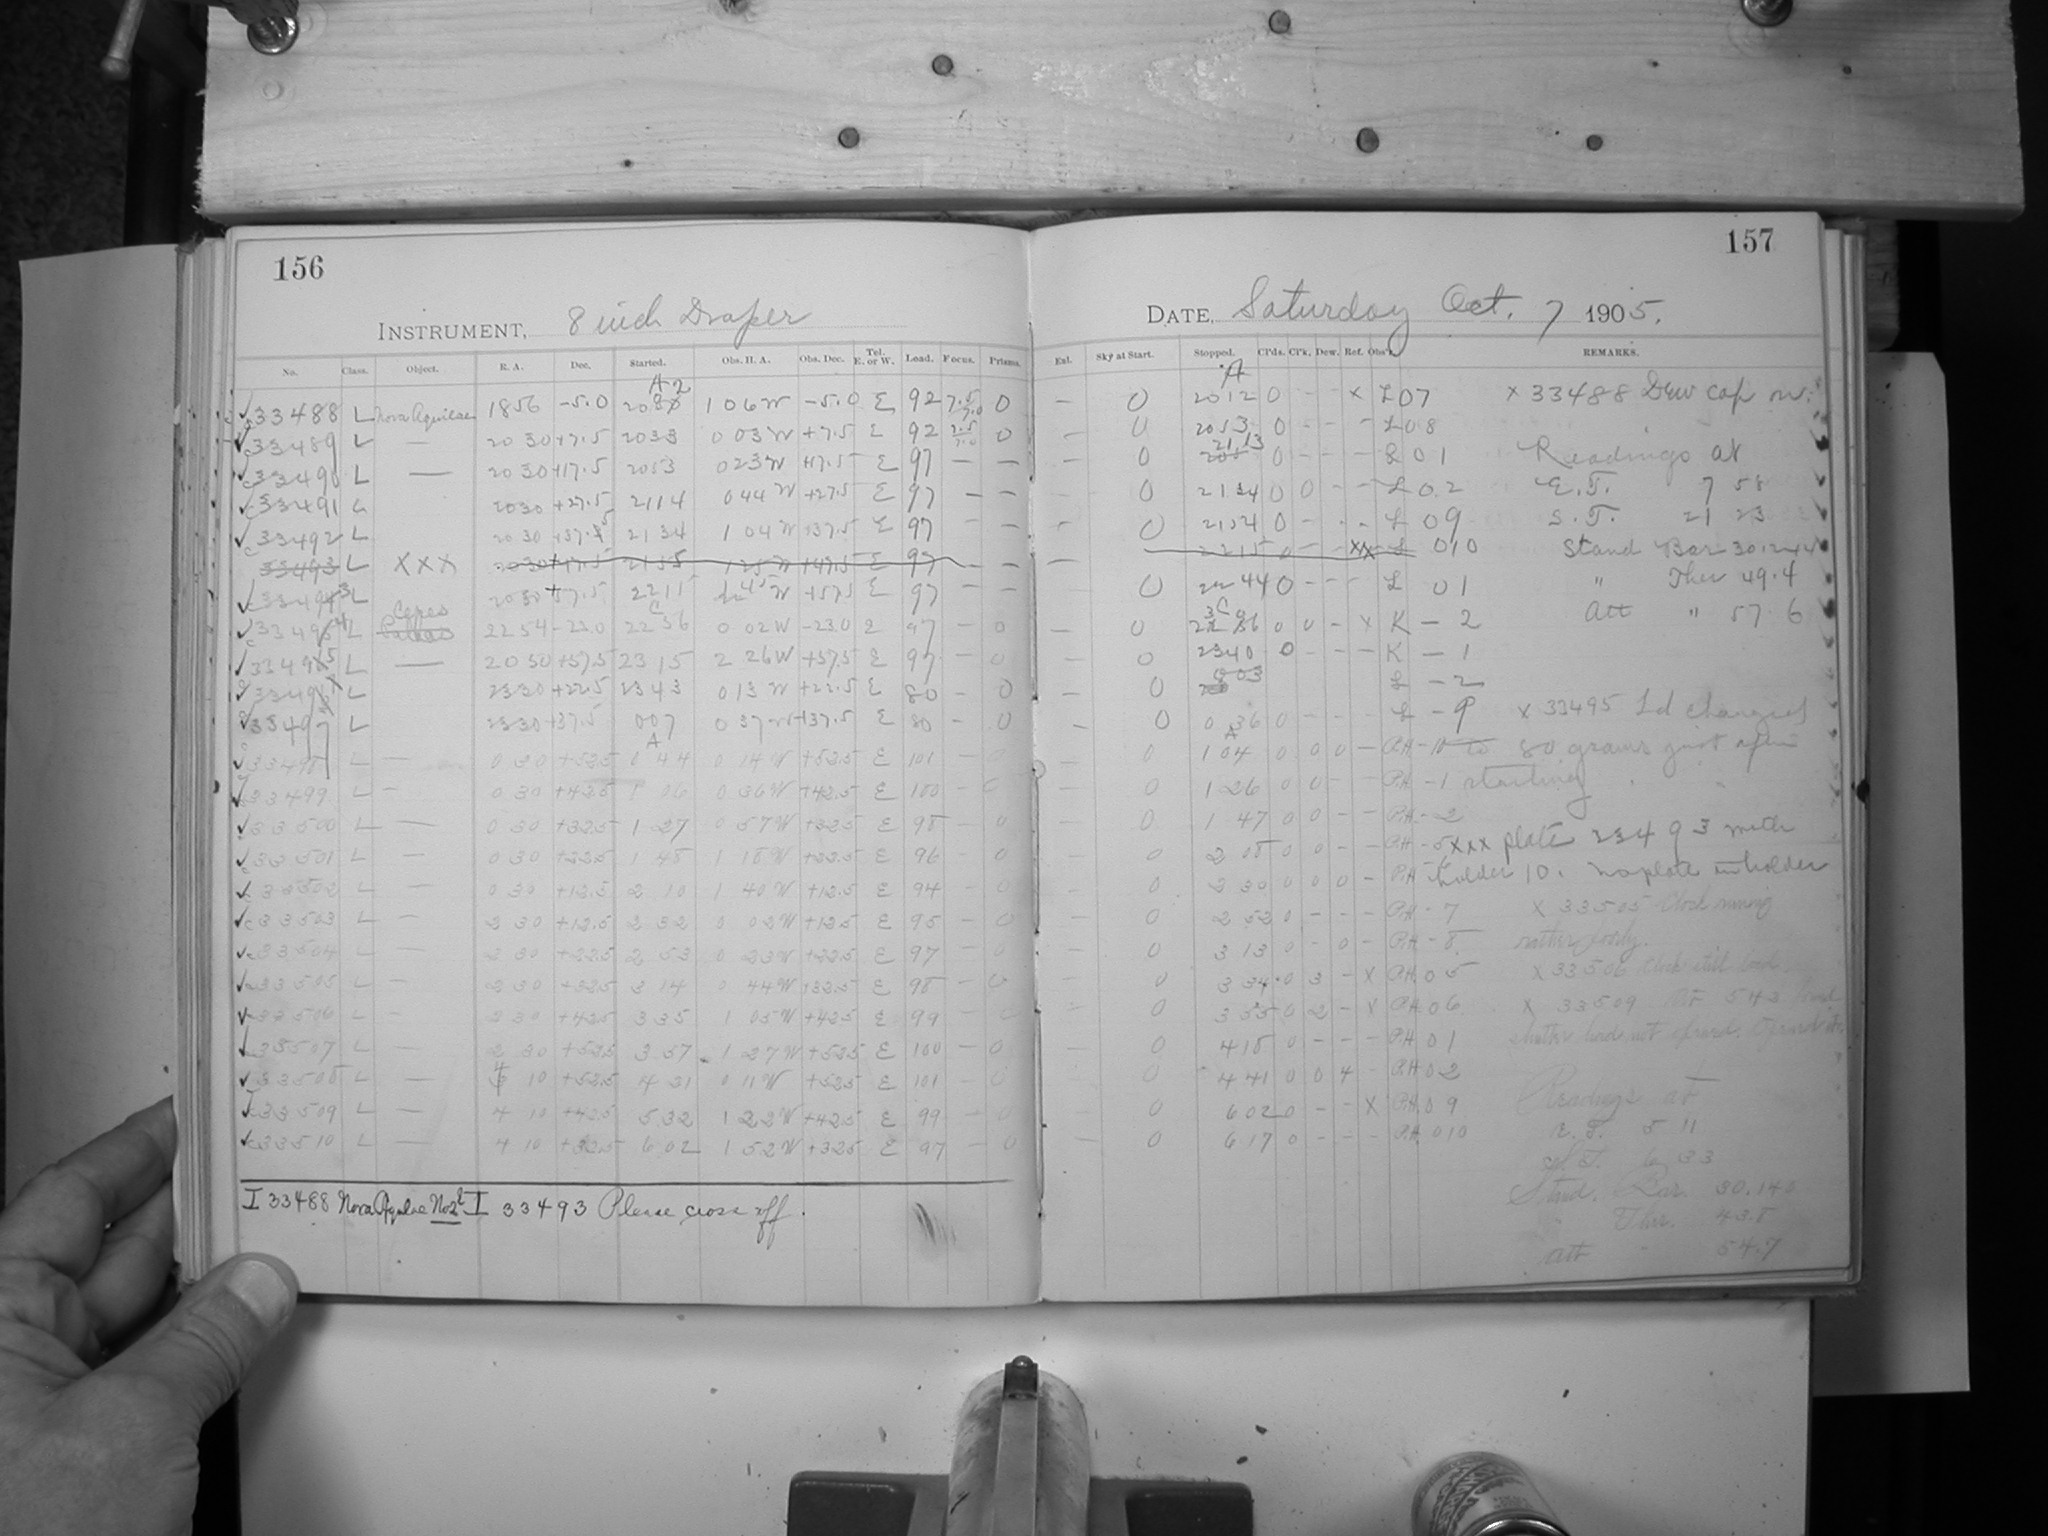 156
INSTRUMENT, 8 inch Draper
No. Class. Object. R. A. Dec. Started. Obs. H. A. Obs. Dec. Tel. E. or W. Load. Focus. Prisms.
33488 L Nova Aquilae 1856 -5.0 1 06 W -5.0 E 92 7.5 7.0 0
33489 L — 20 30 +7.5 2033 0 03 W +7.5 E 92 0
33490 L — 20 30 +17.5 2053 0 23 W +17.5 E 97 — —
33491 L 2030 +27.5 2114 0 44 W +27.5 E 97 — —
33492 L 20 30 +37.5 2134 1 04 W +37.5 E 97 — —
33493 L XXX 2030 +47.5 2155 1 25 W +47.5 E 97 — —
L 2030 +57.5 2215 W +57.5 E 97 — —
L Ceres 2254 -22.0 2256 0 02 W -23.0 E 97 — 0
L — 2030 +57.5 2315 2 26 W +57.5 E 97 — 0
L 2330 +22.5 2343 0 13 W +22.5 E 80 — 0
33497 L 2330 +37.5 007 0 37 W +37.5 E 80 — 0
33498 L — 0 30 +52.5 0 44 0 14 W +52.5 E 101 — 0
33499 L — 0 30 +42.5 1 06 0 36 W +42.5 E 100 — 0
33500 L — 0 30 +32.5 1 27 0 57 W +32.5 E 98 — 0
33501 L — 0 30 +22.5 1 48 1 18 W +22.5 E 96 — 0
33502 L — 0 30 +12.5 2 10 1 40 W +12.5 E 94 — 0
33503 L — 2 30 +12.5 2 32 0 02 W +12.5 E 95 — 0
33504 L — 2 30 +22.5 2 53 0 23 W +22.5 E 97 — 0
33505 L — 2 30 +32.5 3 14 0 44 W +32.5 E 98 — 0
33506 L — 2 30 +42.5 3 35 1 05 W +42.5 E 99 — 0
33507 L — 2 30 +52.5 3 57 1 27 W +52.5 E 100 — 0
33508 L — 4 10 +52.5 4 21 0 11 W +52.5 E 101 — 0
33509 L — 4 10 +42.5 5 32 1 22 W +42.5 E 99 — 0
33510 L — 4 10 +32.5 6 02 1 52 W +32.5 E 97 — 0
I 33488 Nova Aquilae No 2 I 33493 Please cross off.
157
DATE, Saturday Oct. 7 1905.
Enl. Sky at Start. Stopped. Cl'ds. Cl'k. Dew. Ref. Obs'r. REMARKS.
— 0 A 2012 0 — — x L 07 x 33488 Dew cap on.
— 0 2053 0 — — — L 08
— 0 21 13 0 — — — L 01 Readings at
— 0 2134 0 0 — — L 02 E.T. 7 58
— 0 2154 0 — — — L 09 S.T. 21 23
— 2215 0 — — XX L 010 Stand Bar 30.244
0 2244 0 — — — L 01 " Ther 49.4
— 0 0 0 — x K — 2 Att " 57.6
— 0 2340 0 — — — K — 1
— 0 0 03 L — 2
— 0 0 36 0 — — — L — 9 x 33495 Ld changed
0 A 1 04 0 0 0 — P.H. — 10 to 80 grams just after
0 1 26 0 0 — — P.H. — 1 starting
0 1 47 0 0 — — P.H. — 2
0 2 08 0 0 — — P.H. — 5 xxx plate 23493 with
0 2 30 0 0 0 — P.H. holder 10. No plate in holder
0 2 52 0 — — — P.H. — 7 x 33505 Clock running
0 3 13 0 — 0 — P.H. — 8 rather
0 3 34 0 3 — x P.H. 05 x 33506 Clock still
0 3 55 0 2 — x P.H. 06 x 33509 At 543 found
0 4 18 0 — — — P.H. 01 shutter not opened. Opened
0 4 41 0 0 4 — P.H. 02
0 6 02 0 — — x P.H. 09 Readings at
0 6 17 0 — — — P.H. 010 E.T. 5 11
S.T. 6 33
Stand. Bar. 30.140
" Ther. 43.8
att 54.7